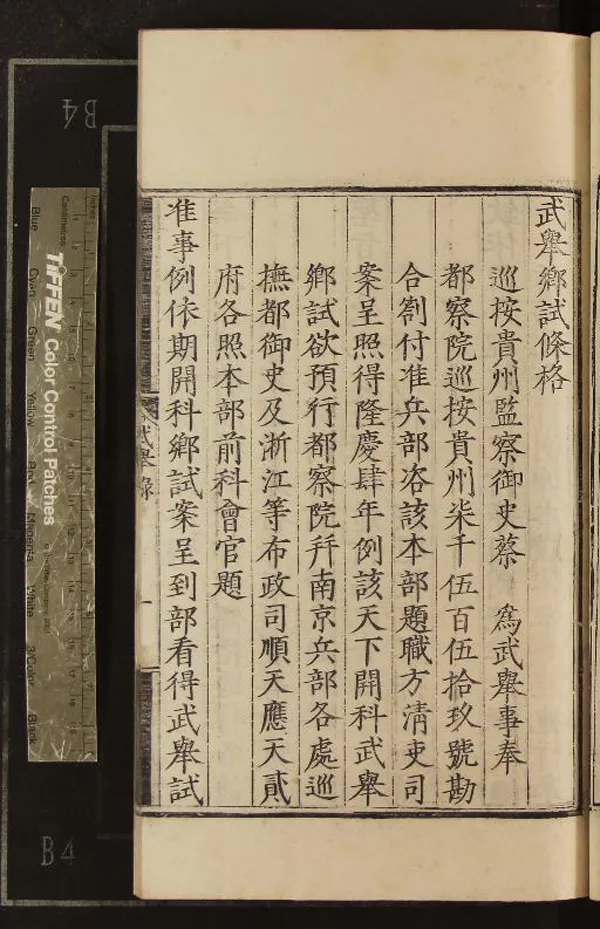 武舉鄉試條格
巡按貴州監察御史蔡　爲武舉事奉
都察院巡按貴州柒千伍百伍拾玖號勘
合劄付准兵部咨該本部題職方清吏司
案呈照得隆慶肆年例該天下開科武舉
鄉試欲預行都察院幷南京兵部各處巡
撫都御史及浙江等布政司順天應天貳
府各照本部前科會官題
准事例依期開科鄉試案呈到部看得武舉試
武舉錄
一
B4
B4
Inches
Centimetres
TIFFEN Color Control Patches
Blue
Cyan
Green
Yellow
Red
Magenta
White
3/Color
Black